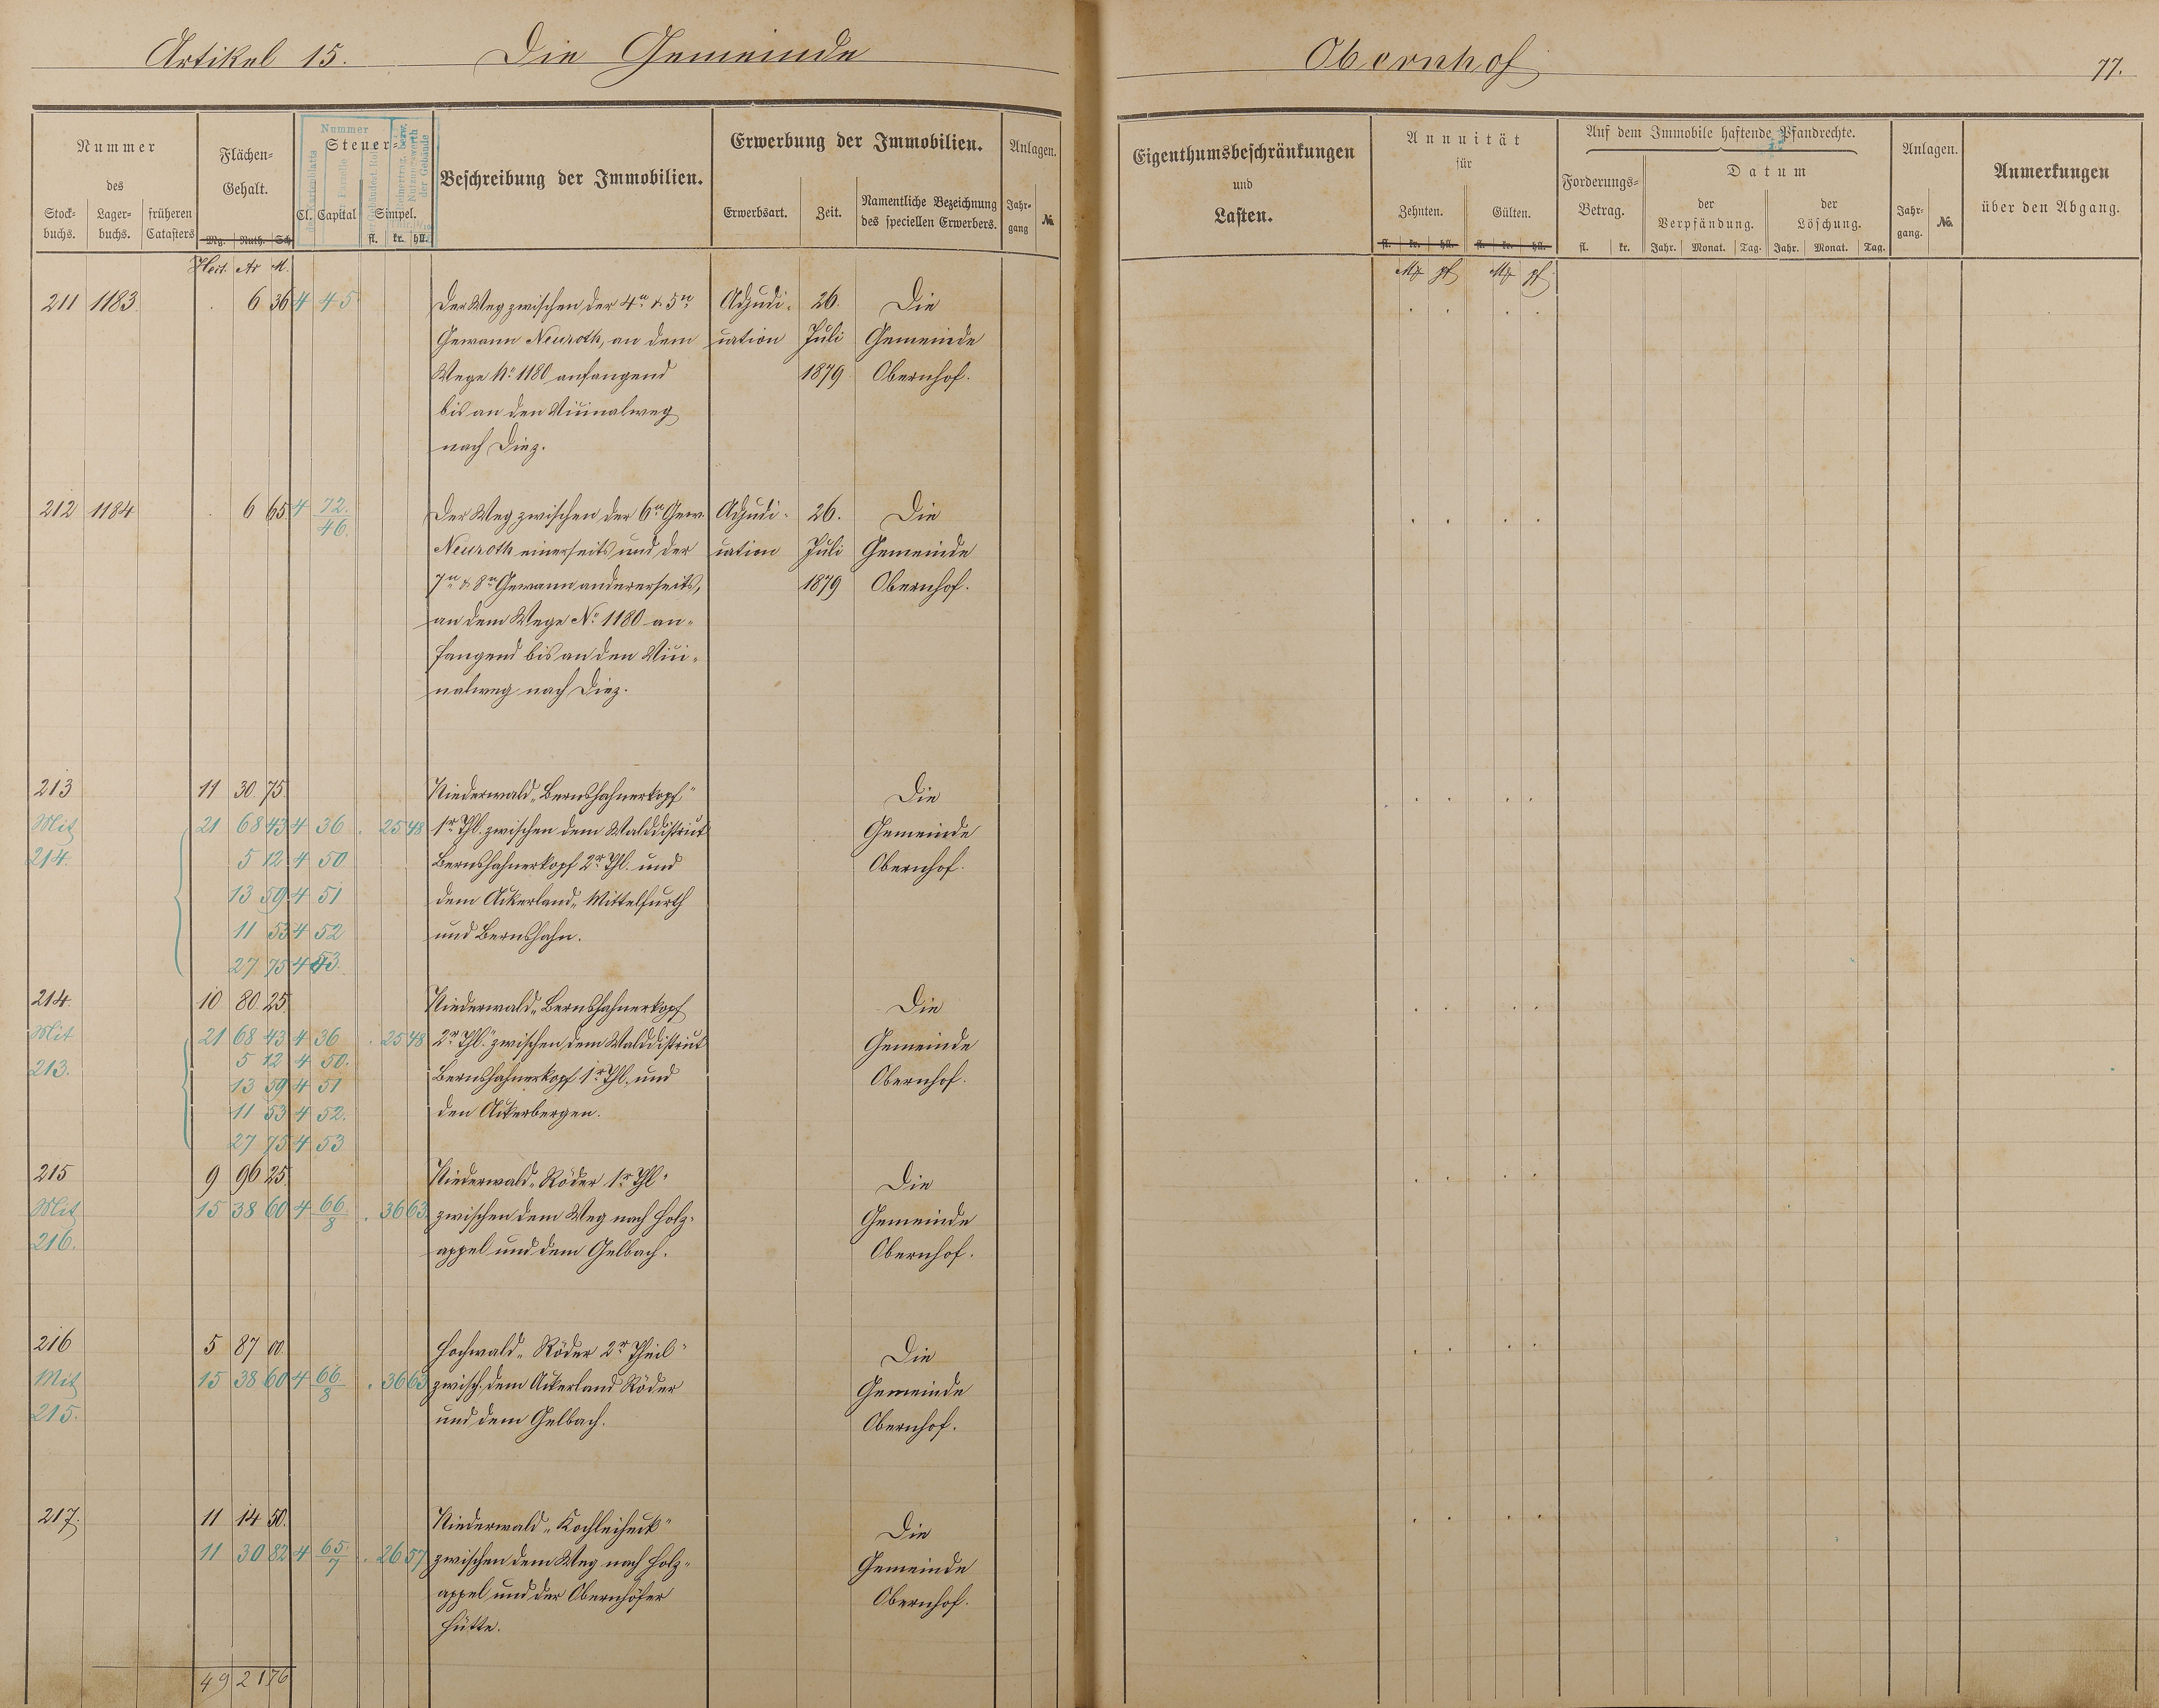 Artikel 15. Die Gemeinde Obernhof 77.
Nummer des
Stock-buchs. Lager-buchs. früheren Catasters
Flächen-Gehalt.
Mg. Ruth. Sch.
Hect. Ar M.
Nummer
Steuer-
Cl. Capital Simpel.
fl. kr. hll.
Beschreibung der Immobilien.
Erwerbung der Immobilien.
Erwerbsart. Zeit. Namentliche Bezeichnung des speciellen Erwerbers.
Anlagen.
Jahr-gang №
Eigenthumsbeschränkungen
und
Lasten.
Annuität
für
Zehnten. Gülten.
fl. kr. hll. fl. kr. hll.
Mk pf Mk pf
Auf dem Immobile haftende Pfandrechte.
Forderungs-Betrag.
fl. kr.
Datum
der Verpfändung. der Löschung.
Jahr. Monat. Tag. Jahr. Monat. Tag.
Anlagen.
Jahr-gang. №
Anmerkungen
über den Abgang.
211 1183 6 36 4 45 Der Weg zwischen der 4n & 5n Adjudi- 26. Die
Gewann Neuroth, an dem cation Juli Gemeinde
Wege No 1180 anfangend 1879 Obernhof.
bis an den Vicinalweg
nach Diez.
212 1184 6 65 4 72. Der Weg zwischen der 6n Gew. Adjudi- 26. Die
46. Neuroth einerseits und der cation Juli Gemeinde
7n & 8n Gewann andererseits, 1879 Obernhof.
an dem Wege No 1180 an-
fangend bis an den Vici-
nalweg nach Diez.
213 11 30 75 Niederwald „Bernshahnerkopf" Die
Mit 21 68 43 4 36 . 25 48 1r Thl. zwischen dem Walddistrict Gemeinde
214. 5 12 4 50 Bernshahnerkopf 2r Thl. und Obernhof.
13 59 4 51 dem Ackerland „Mittelfurth
11 53 4 52 und Bernshahn.
27 75 4 53.
214. 10 80 25 Niederwald „Bernshahnerkopf Die
Mit 21 68 43 4 36 . 25 48 2r Thl." zwischen dem Walddistrict Gemeinde
213. 5 12 4 50. Bernshahnerkopf 1r Thl. und Obernhof.
13 59 4 51 den Ackerbergen.
11 53 4 52.
27 75 4 53
215 9 96 25 Niederwald „Röder 1r Thl." Die
Mit 15 38 60 4 66/8 . 36 63 zwischen dem Weg nach Holz- Gemeinde
216. appel und dem Gelbach. Obernhof.
216 5 87 00. Hochwald „Röder 2r Theil" Die
Mit 15 38 60 4 66/8 . 36 63 zwisch. dem Ackerland Röder Gemeinde
215. und dem Gelbach. Obernhof.
217. 11 14 50. Niederwald „Kochleiheck" Die
11 30 82 4 65/7 . 26 57 zwischen dem Weg nach Holz- Gemeinde
appel und der Obernhöfer Obernhof.
Hütte.
49 21 76